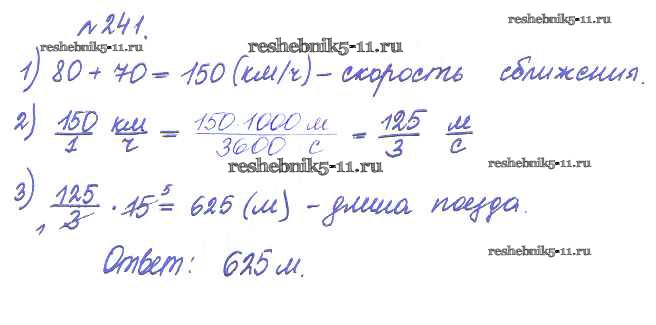 №241.
reshebnik5-11.ru
reshebnik5-11.ru
reshebnik5-11.ru
1) 80 + 70 = 150 (км/ч) – скорость сближения.
2) 150/1 км/ч = 150·1000 м/3600 с = 125/3 м/с
reshebnik5-11.ru
reshebnik5-11.ru
3) 125/3 1 · 15 5 = 625 (м) – длина поезда.
Ответ: 625 м.
reshebnik5-11.ru